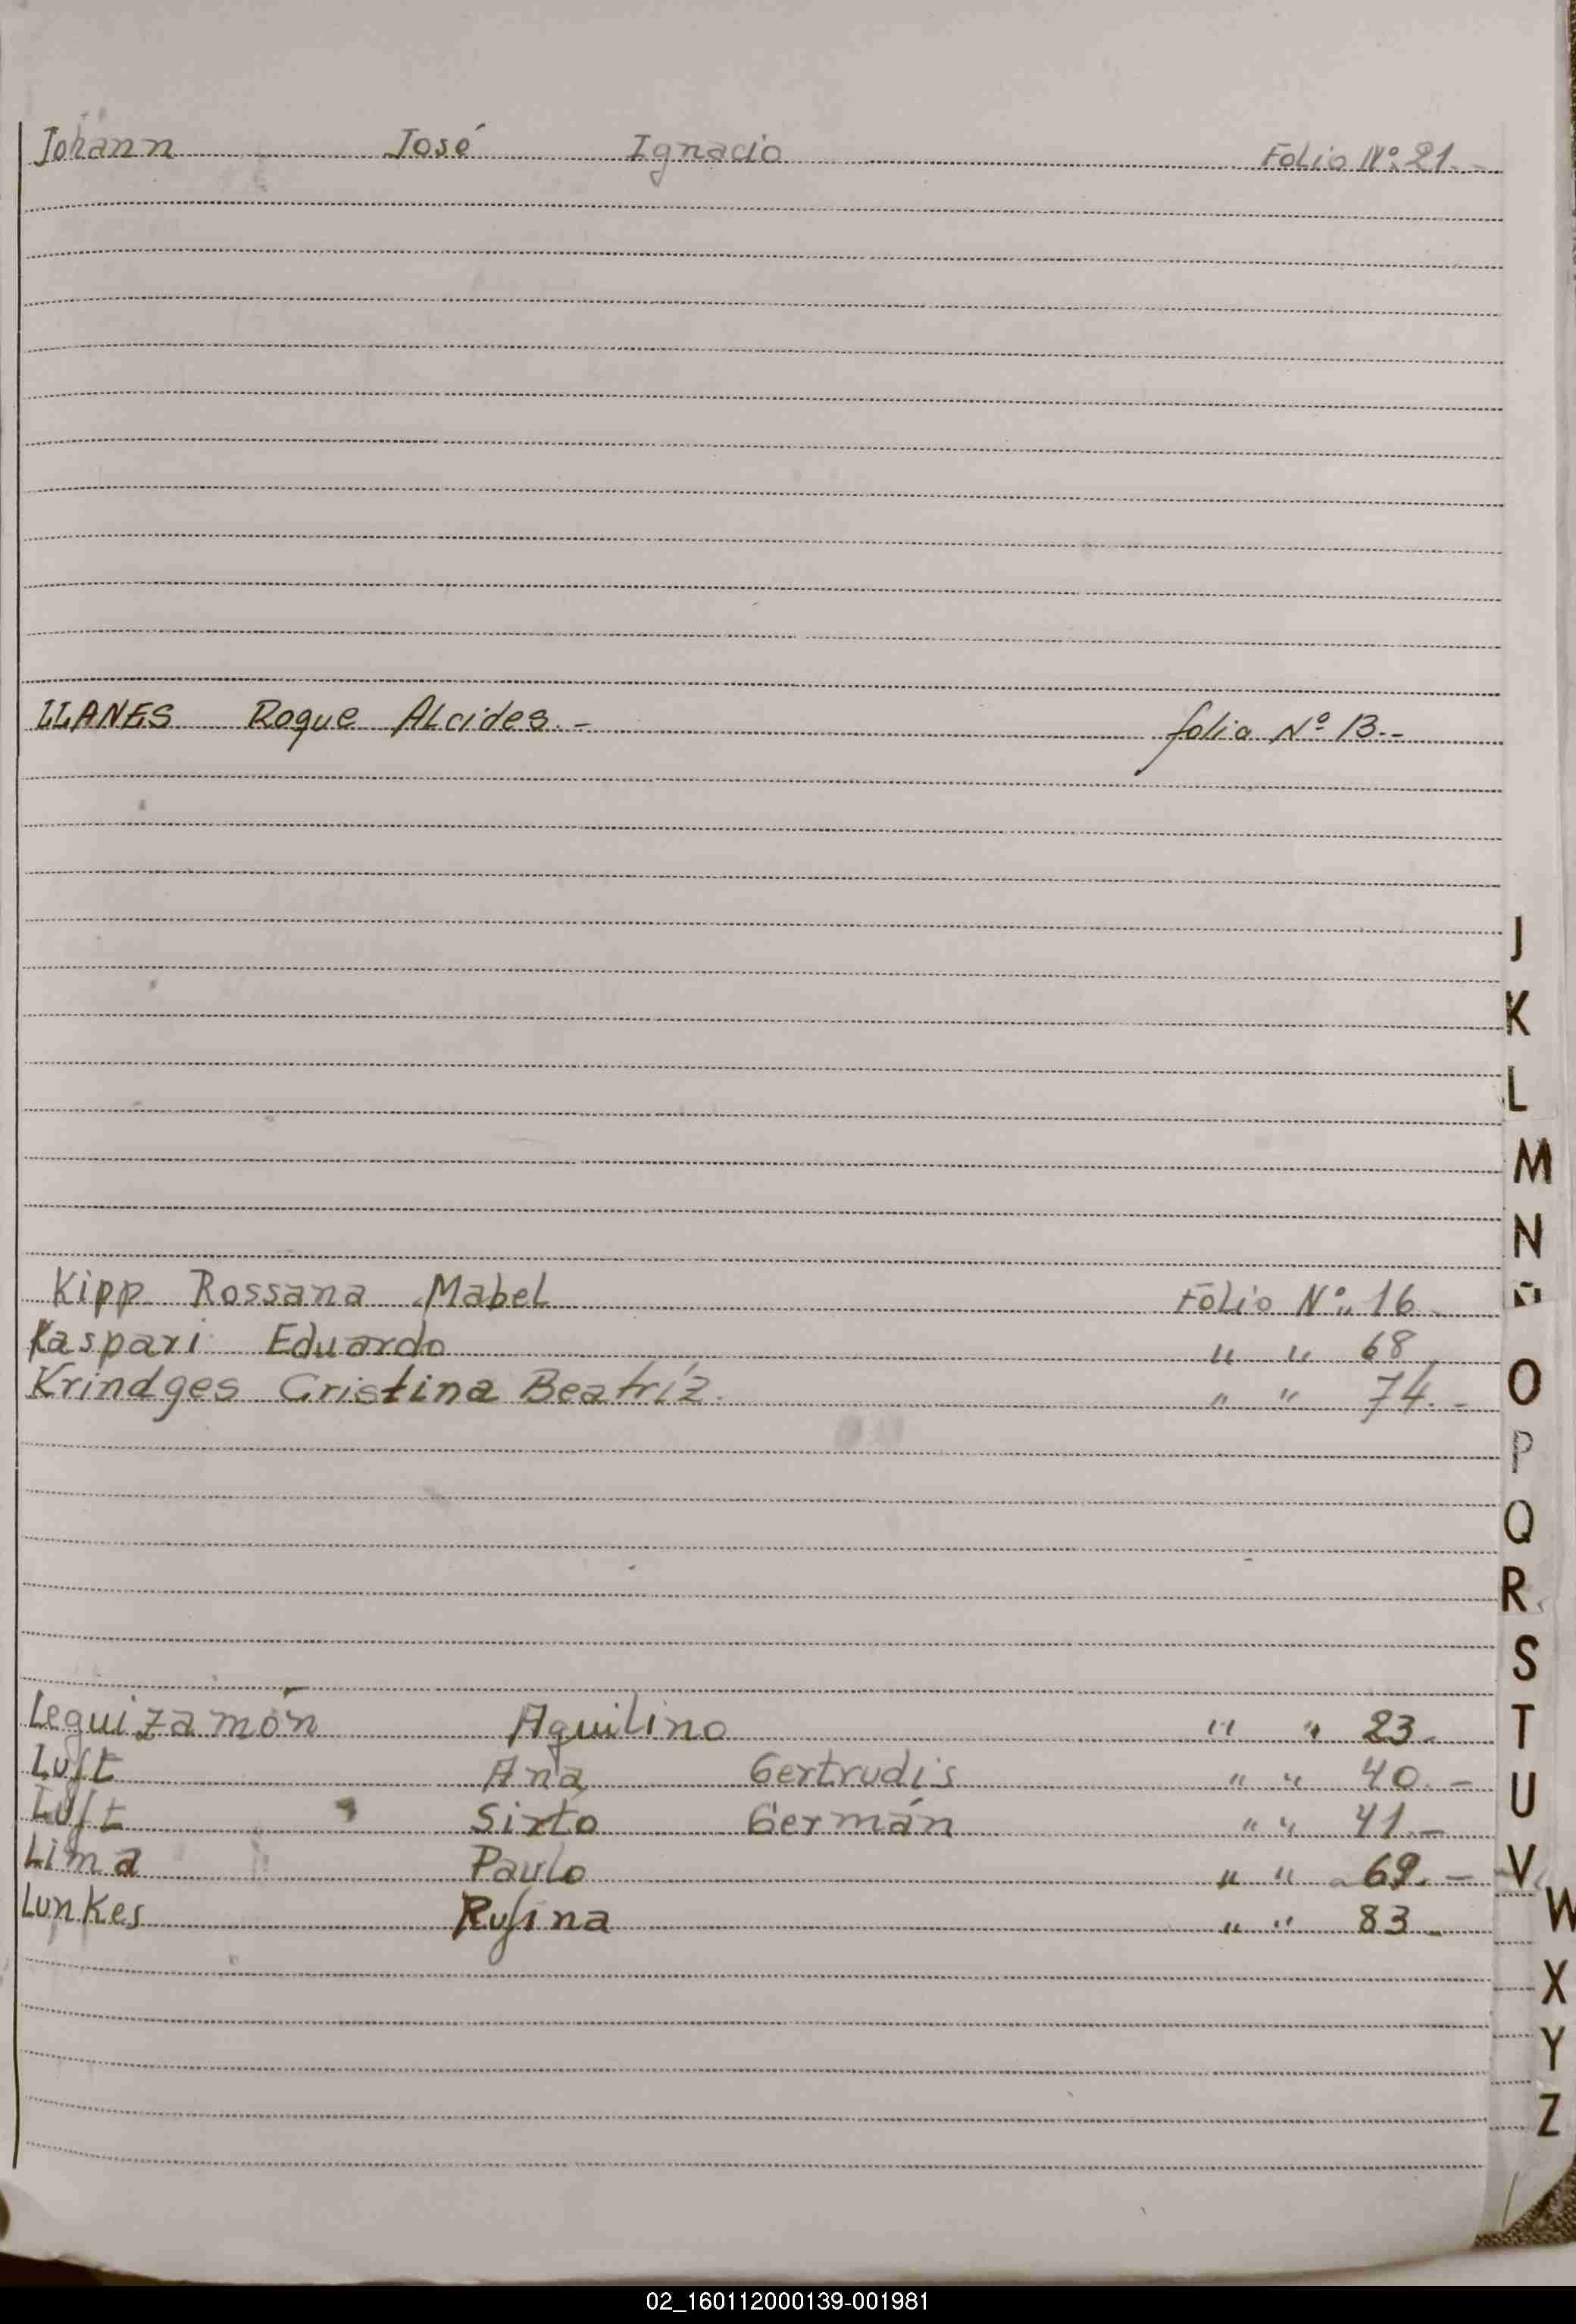 Johann José Ignacio Folio Nº 21.-
LLANES Roque ALcides.- folio Nº 13.-
J
K
L
M
N
Kipp Rossana Mabel Folio Nº 16
Kaspari Eduardo " " 68
Krindges Cristina Beatríz. " " 74.-
O
P
Q
R
S
Leguizamón Aquilino " " 23.
T
Luft Ana Gertrudis " " 40.-
U
Luft Sixto Germán " " 41.-
Lima Paulo " " 69.-
V
Lunkes Rufina " " 83-
W
X
Y
Z
02_160112000139-001981